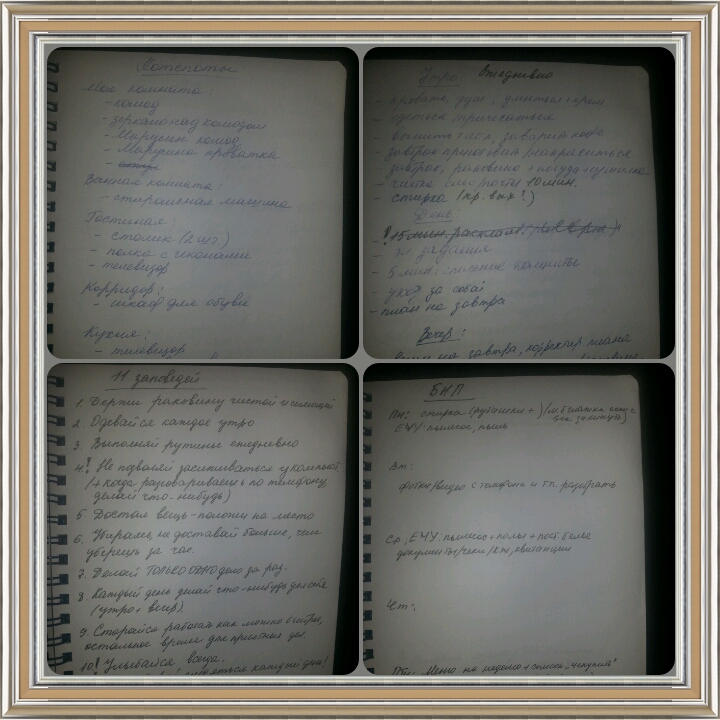 Хотспоты
Моя комната:
- комод
- зеркало над комодом
- Марусин комод
- Марусина кроватка
Ванная комната:
- стиральная машина
Гостиная:
- столик (2 шт.)
- полка с иконами
- телевизор
Корридор:
- шкаф для обуви
Кухня:
- телевизор
Утро: Ежедневно
- кровать, душ, умыться+крем
- одеться, причесаться
- заварить кофе
- завтрак приготовить/накраситься
- завтрак, раковина + посуда+сушилка
- чистка эл. почты 10 мин.
- стирка (кр. вых?)
День
! 15 мин. расхлам.
- задания
- 5 мин. спасение комнаты
- уход за собой
- план на завтра
Вечер:
на завтра, корректир плана
11 заповедей
1. Держи раковину чистой и сияющей
2. Одевайся каждое утро
3. Выполняй рутины ежедневно
4! Не подволяй засиживаться у компьют.
(+ когда разговариваешь по телефону,
делай что-нибудь)
5. Достал вещь - положи на место
6. Убираясь, не доставай больше, чем
уберешь за час.
7. Делай ТОЛЬКО ОДНО дело за раз.
8. Каждый день делай что-нибудь для себя
(утро + вечер).
9. Старайся работать как можно быстрее,
остальное время для приятных дел.
10! Улыбайся всегда.
каждый день!
БНП
Пн: стирка (рубашки +)
ЕЧУ: пылесос, пыль
Вт:
фотки/видео с телефона и т.п. разобрать
Ср, ЕЧУ: пылесос + полы + пост. белье
документы/чеки/ квитанции
Чт:
Пт: Меню на неделю + список